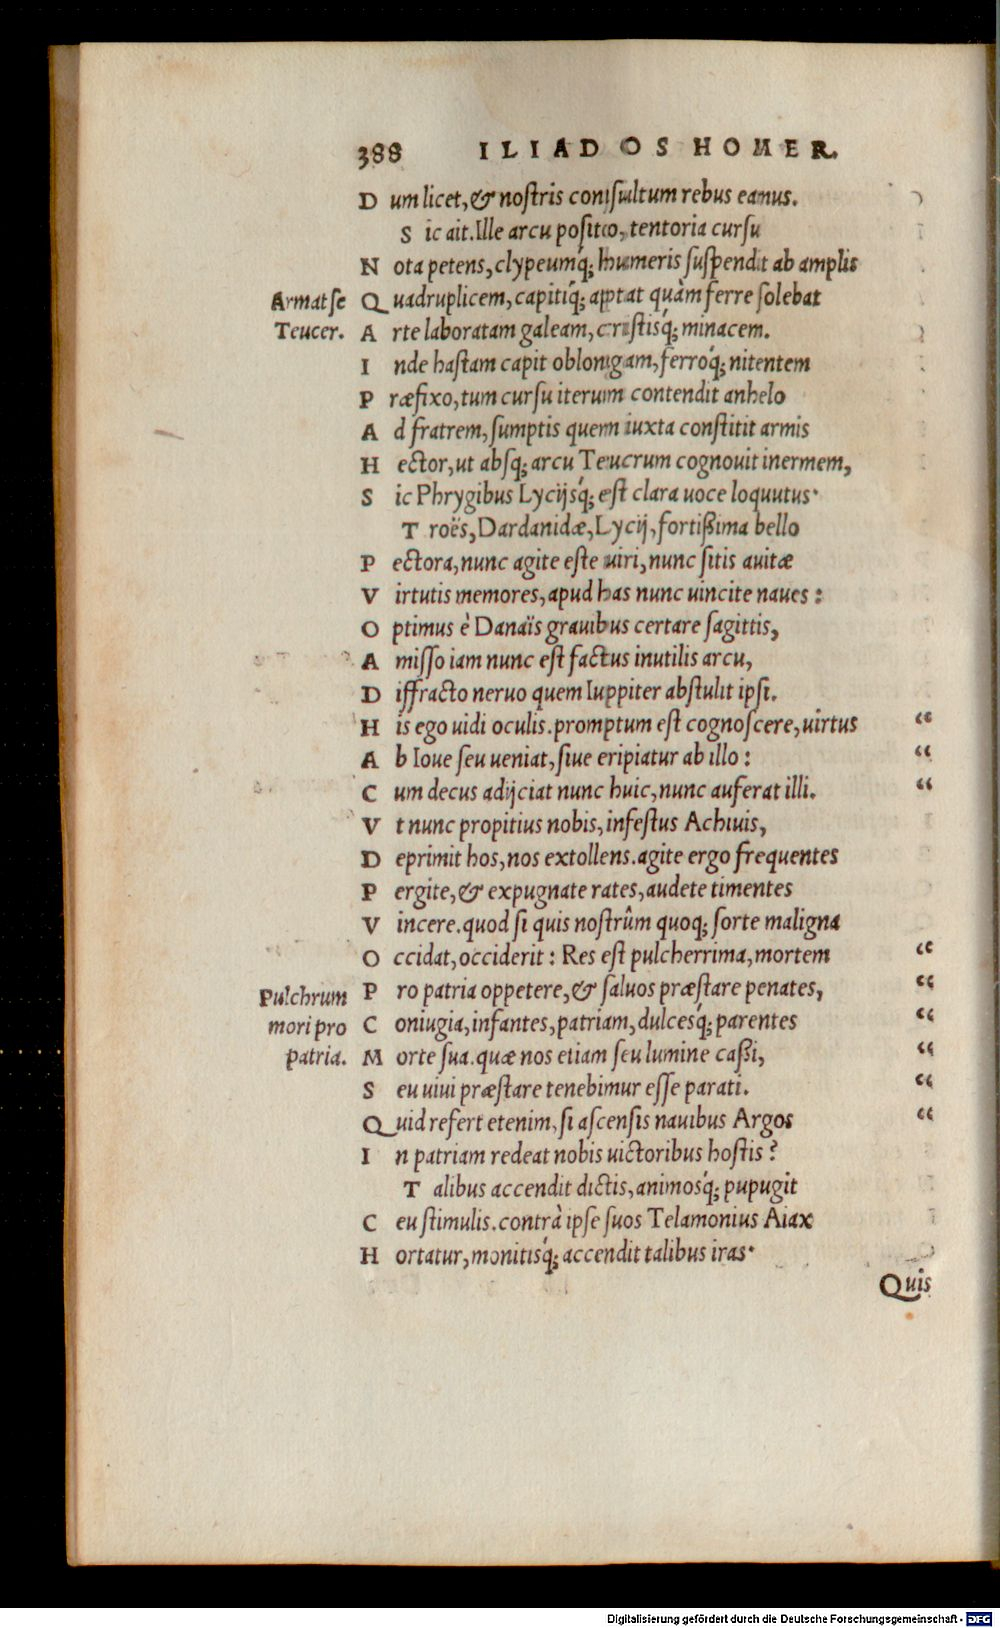 388 ILIADOS HOMER.
Dum licet, & nostris consultum rebus eamus.
Sic ait. Ille arcu posito, tentoria cursu
Nota petens, clypeumq́; humeris suspendit ab amplis
Armat se Quadruplicem, capitiq́; aptat quàm ferre solebat
Teucer. Arte laboratam galeam, cristisq́; minacem.
Inde hastam capit oblongam, ferroq́; nitentem
Præfixo, tum cursu iterum contendit anhelo
Ad fratrem, sumptis quem iuxta constitit armis
Hector, ut absq; arcu Teucrum cognouit inermem,
Sic Phrygibus Lycijsq́; est clara uoce loquutus·
Troës, Dardanidæ, Lycij, fortißima bello
Pectora, nunc agite este uiri, nunc sitis auitæ
Virtutis memores, apud has nunc uincite naues:
Optimus è Danaïs grauibus certare sagittis,
Amisso iam nunc est factus inutilis arcu,
Diffracto neruo quem Iuppiter abstulit ipsi.
His ego uidi oculis. promptum est cognoscere, uirtus “
Ab Ioue seu ueniat, siue eripiatur ab illo: “
Cum decus adijciat nunc huic, nunc auferat illi. “
Vt nunc propitius nobis, infestus Achiuis,
Deprimit hos, nos extollens. agite ergo frequentes
Pergite, & expugnate rates, audete timentes
Vincere. quod si quis nostrûm quoq; sorte maligna
Occidat, occiderit: Res est pulcherrima, mortem “
Pulchrum Pro patria oppetere, & saluos præstare penates, “
mori pro Coniugia, infantes, patriam, dulcesq́; parentes “
patria. Morte sua. quæ nos etiam seu lumine caßi, “
Seu uiui præstare tenebimur esse parati. “
Quid refert etenim, si ascensis nauibus Argos “
In patriam redeat nobis uictoribus hostis?
Talibus accendit dictis, animosq́; pupugit
Ceu stimulis. contrà ipse suos Telamonius Aiax
Hortatur, monitisq́; accendit talibus iras·
Quis
Digitalisierung gefördert durch die Deutsche Forschungsgemeinschaft - DFG